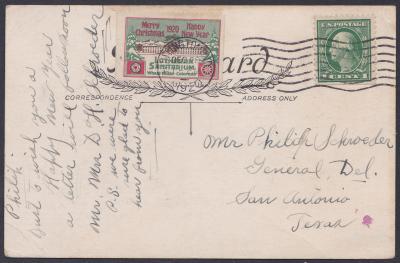 Merry Christmas 1920 Happy New Year
Lutheran
Sanitarium
Wheat Ridge - Colorado
U.S. POSTAGE
1 CENT 1
ard
CORRESPONDENCE
ADDRESS ONLY
Philip
Just to wish you a
Happy New Year
a letter will follow soon
Mr. Mrs D. H. Schroeder
P.S. we were
sure glad to
hear from you
Mr Philip Schroeder
General Del.
San Antonio
Texas